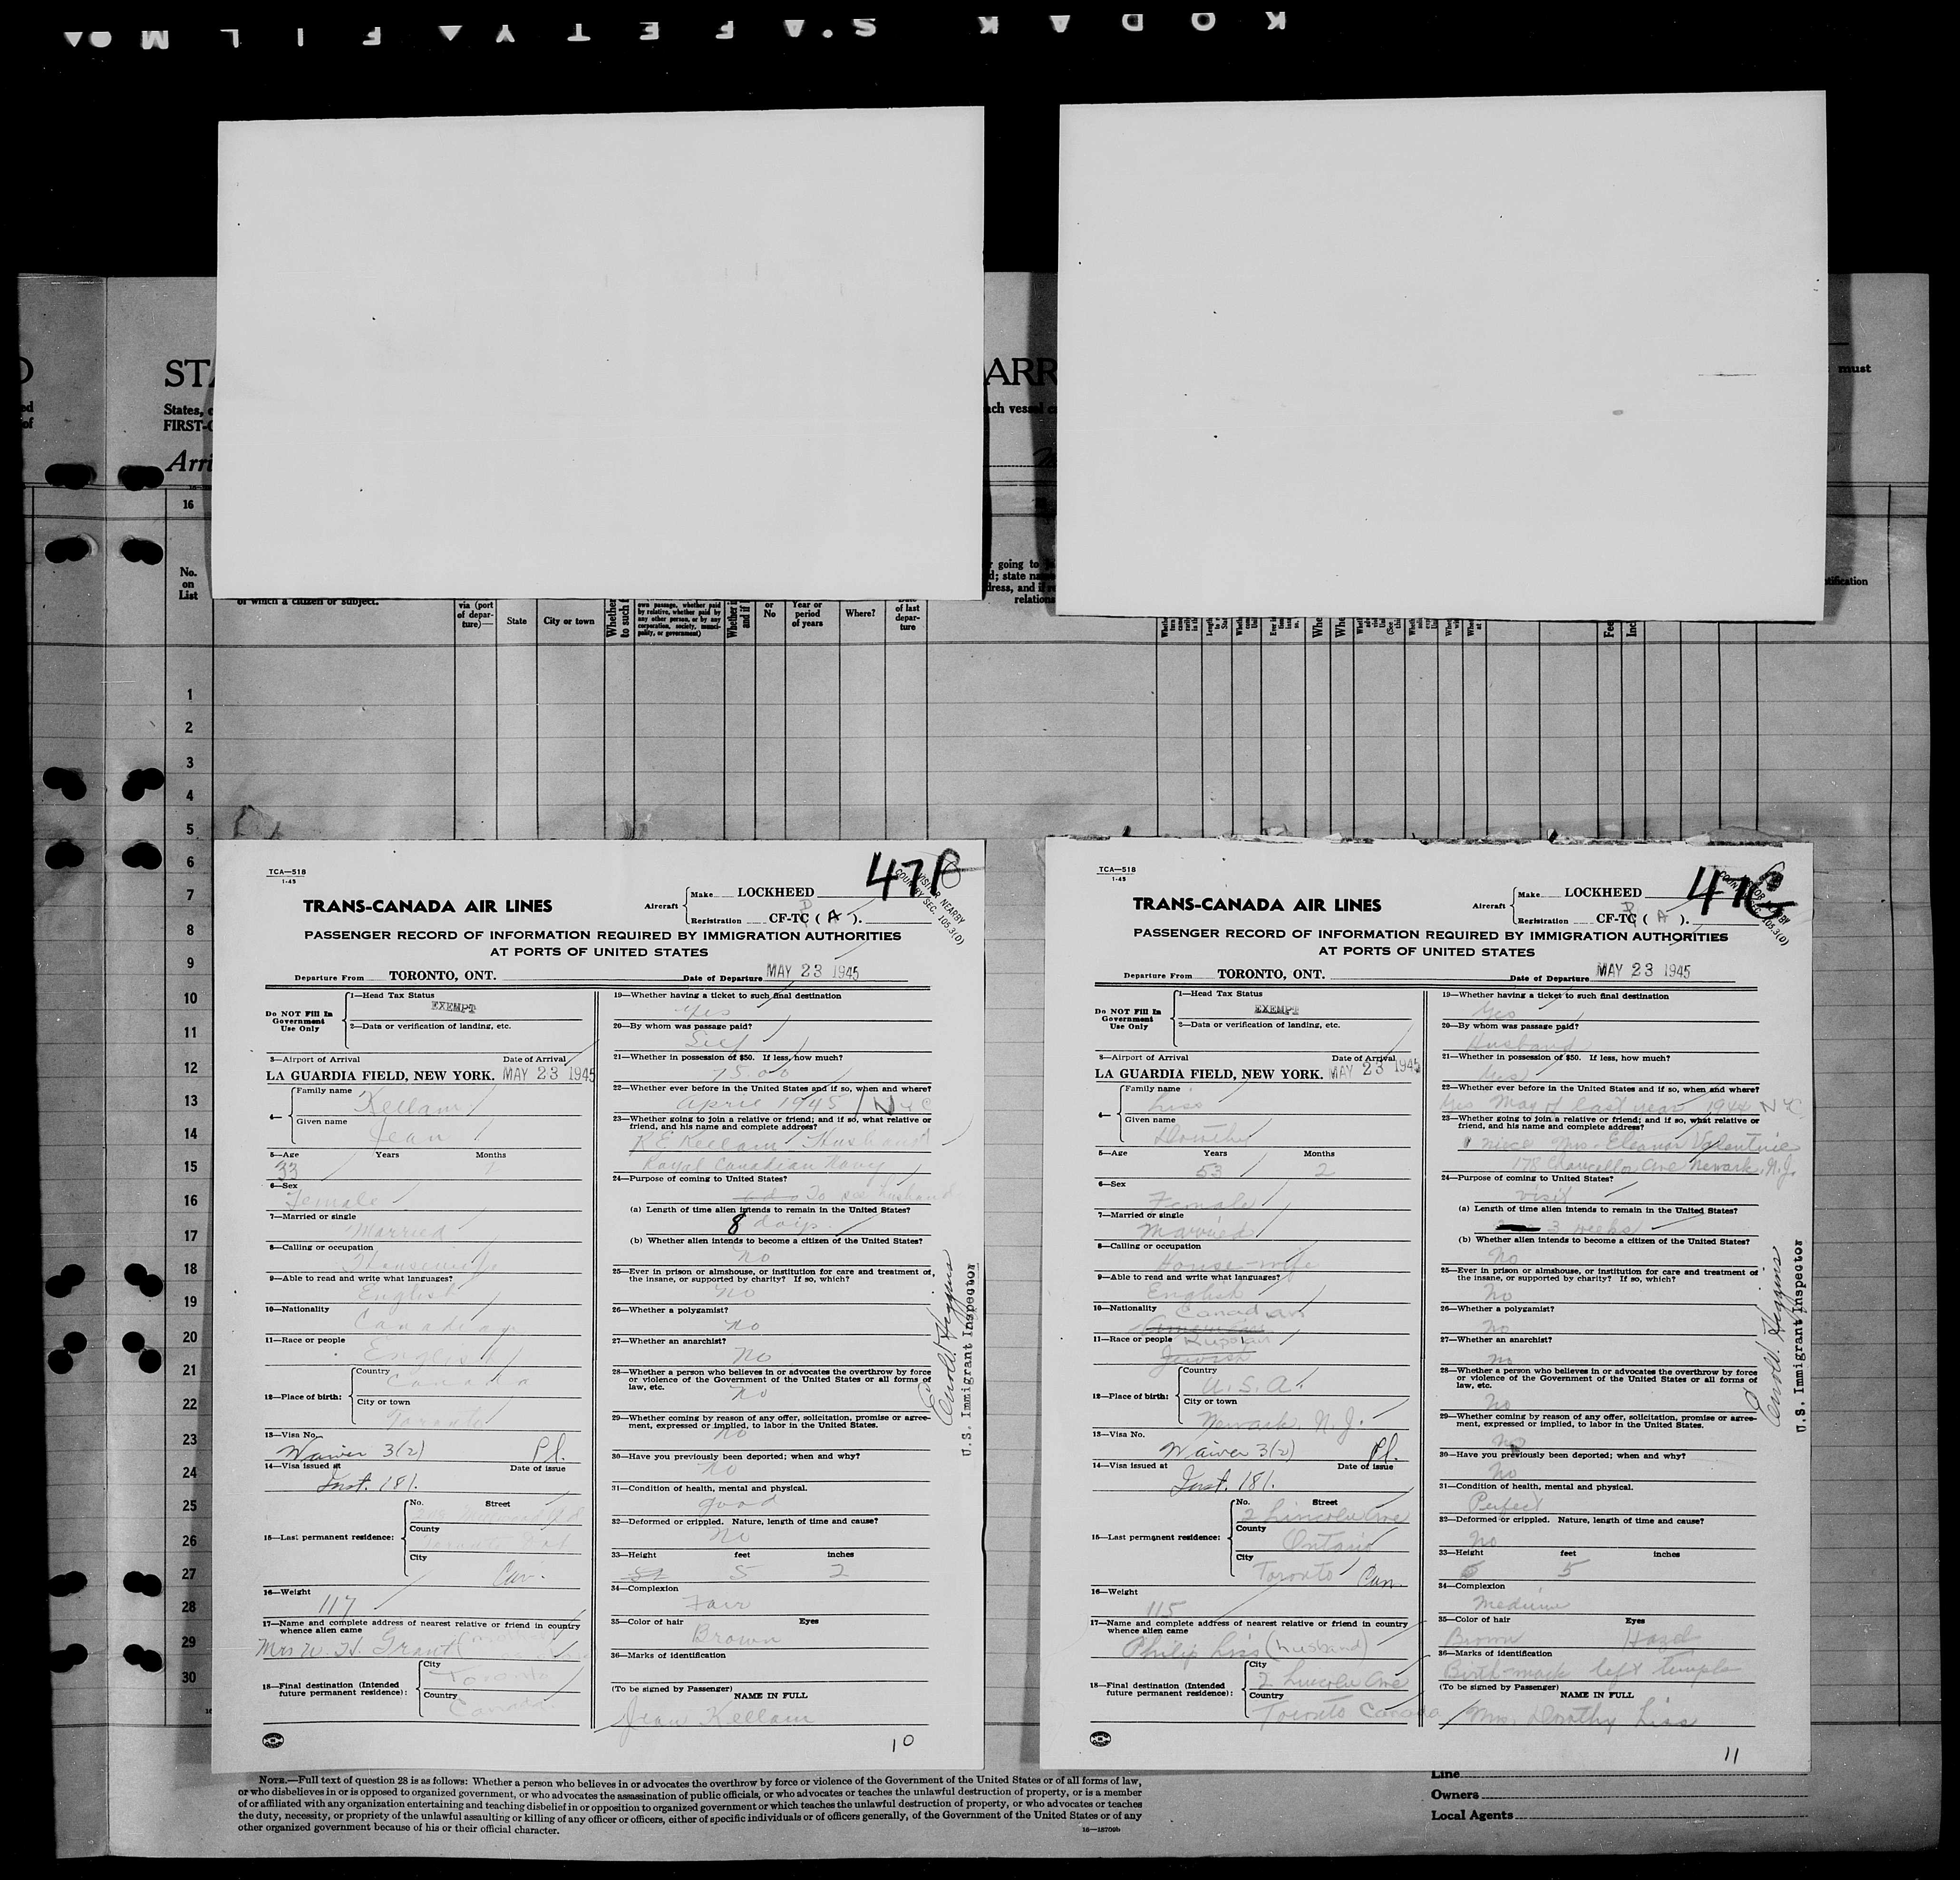 KODAK SAFETY FILM
STA
ARR
must
States,
ach vessel
FIRST-C
Arri
16
No.
on
List
of which a citizen or subject.
via (port
of depar-
ture)—
State
City or town
Whether
to such
own passage, whether paid
by relative, whether paid by
any other person, or by any
corporation, society, munici-
pality, or government)
or
No
Year or
period
of years
Where?
of last
depar-
ture
going to
relations
1
2
3
4
5
6
7
8
9
10
11
12
13
14
15
16
17
18
19
20
21
22
23
24
25
26
27
28
29
30
TCA—518
1-45
TRANS-CANADA AIR LINES
Aircraft
Make LOCKHEED
Registration CF-TC ( A ).
VISITOR NEARBY
COUNTRY SEC. 105.3(D)
PASSENGER RECORD OF INFORMATION REQUIRED BY IMMIGRATION AUTHORITIES
AT PORTS OF UNITED STATES
Departure From TORONTO, ONT. Date of Departure MAY 23 1945
Do NOT Fill In
Government
Use Only
1—Head Tax Status
EXEMPT
2—Data or verification of landing, etc.
3—Airport of Arrival Date of Arrival
LA GUARDIA FIELD, NEW YORK. MAY 23 1945
4— Family name
Kellam
Given name
Jean
5—Age Years Months
33
6—Sex
Female
7—Married or single
Married
8—Calling or occupation
Housewife
9—Able to read and write what languages?
English
10—Nationality
Canadian
11—Race or people
English
12—Place of birth: Country
Canada
City or town
Toronto
13—Visa No.
Waiver 3(2) Pl.
14—Visa issued at Date of issue
Inst. 181.
15—Last permanent residence: No. Street
County
City
Can.
16—Weight
117
17—Name and complete address of nearest relative or friend in country
whence alien came
Mrs W. H. Grant
18—Final destination (Intended
future permanent residence):
City
Toronto
Country
Canada
19—Whether having a ticket to such final destination
Yes
20—By whom was passage paid?
Self
21—Whether in possession of $50. If less, how much?
75.00
22—Whether ever before in the United States and if so, when and where?
April 1945 NYC
23—Whether going to join a relative or friend; and if so, what relative or
friend, and his name and complete address?
R E Kellam Husband
Royal Canadian Navy
24—Purpose of coming to United States?
To see husband
(a) Length of time alien intends to remain in the United States?
8 days
(b) Whether alien intends to become a citizen of the United States?
No
25—Ever in prison or almshouse, or institution for care and treatment of
the insane, or supported by charity? If so, which?
No
26—Whether a polygamist?
No
27—Whether an anarchist?
No
28—Whether a person who believes in or advocates the overthrow by force
or violence of the Government of the United States or all forms of
law, etc.
No
29—Whether coming by reason of any offer, solicitation, promise or agree-
ment, expressed or implied, to labor in the United States.
No
30—Have you previously been deported; when and why?
No
31—Condition of health, mental and physical.
good
32—Deformed or crippled. Nature, length of time and cause?
No
33—Height feet inches
5 2
34—Complexion
Fair
35—Color of hair Eyes
Brown
36—Marks of identification
(To be signed by Passenger)
NAME IN FULL
Jean Kellam
10
U.S. Immigrant Inspector
TCA—518
1-45
TRANS-CANADA AIR LINES
Aircraft
Make LOCKHEED
Registration CF-TC ( A ).
PASSENGER RECORD OF INFORMATION REQUIRED BY IMMIGRATION AUTHORITIES
AT PORTS OF UNITED STATES
Departure From TORONTO, ONT. Date of Departure MAY 23 1945
Do NOT Fill In
Government
Use Only
1—Head Tax Status
EXEMPT
2—Data or verification of landing, etc.
3—Airport of Arrival Date of Arrival
LA GUARDIA FIELD, NEW YORK. MAY 23 1945
4— Family name
Liss
Given name
Dorothy
5—Age Years Months
53 2
6—Sex
Female
7—Married or single
Married
8—Calling or occupation
House-wife
9—Able to read and write what languages?
English
10—Nationality
Canadian
11—Race or people
Russian
Jewish
12—Place of birth: Country
U.S.A.
City or town
Newark, N.J.
13—Visa No.
Waiver 3(2) Pl.
14—Visa issued at Date of issue
Inst. 181.
15—Last permanent residence: No. Street
2 Lincoln Ave
County
Ontario
City
Toronto Can.
16—Weight
115
17—Name and complete address of nearest relative or friend in country
whence alien came
Philip Liss (husband)
18—Final destination (Intended
future permanent residence):
City
2 Lincoln Ave
Country
Toronto Canada
19—Whether having a ticket to such final destination
Yes
20—By whom was passage paid?
Husband
21—Whether in possession of $50. If less, how much?
Yes
22—Whether ever before in the United States and if so, when and where?
Yes May of last year 1944 NYC
23—Whether going to join a relative or friend; and if so, what relative or
friend, and his name and complete address?
niece Mrs. Eleanor Valentine
178 Chancellor Ave Newark, N.J.
24—Purpose of coming to United States?
visit
(a) Length of time alien intends to remain in the United States?
3 weeks
(b) Whether alien intends to become a citizen of the United States?
No
25—Ever in prison or almshouse, or institution for care and treatment of
the insane, or supported by charity? If so, which?
No
26—Whether a polygamist?
No
27—Whether an anarchist?
No
28—Whether a person who believes in or advocates the overthrow by force
or violence of the Government of the United States or all forms of
law, etc.
No
29—Whether coming by reason of any offer, solicitation, promise or agree-
ment, expressed or implied, to labor in the United States.
No
30—Have you previously been deported; when and why?
No
31—Condition of health, mental and physical.
Perfect
32—Deformed or crippled. Nature, length of time and cause?
No
33—Height feet inches
5 5
34—Complexion
Medium
35—Color of hair Eyes
Brown Hazel
36—Marks of identification
Birth-mark left temple
(To be signed by Passenger)
NAME IN FULL
Mrs. Dorothy Liss
11
U.S. Immigrant Inspector
NOTE.—Full text of question 28 is as follows: Whether a person who believes in or advocates the overthrow by force or violence of the Government of the United States or of all forms of law,
or who disbelieves in or is opposed to organized government, or who advocates the assassination of public officials, or who advocates or teaches the unlawful destruction of property, or is a member
of or affiliated with any organization entertaining and teaching disbelief in or opposition to organized government or which teaches the unlawful destruction of property, or who advocates or teaches
the duty, necessity, or propriety of the unlawful assaulting or killing of any officer or officers, either of specific individuals or of officers generally, of the Government of the United States or of any
other organized government because of his or their official character.
16—18709b
Line
Owners
Local Agents